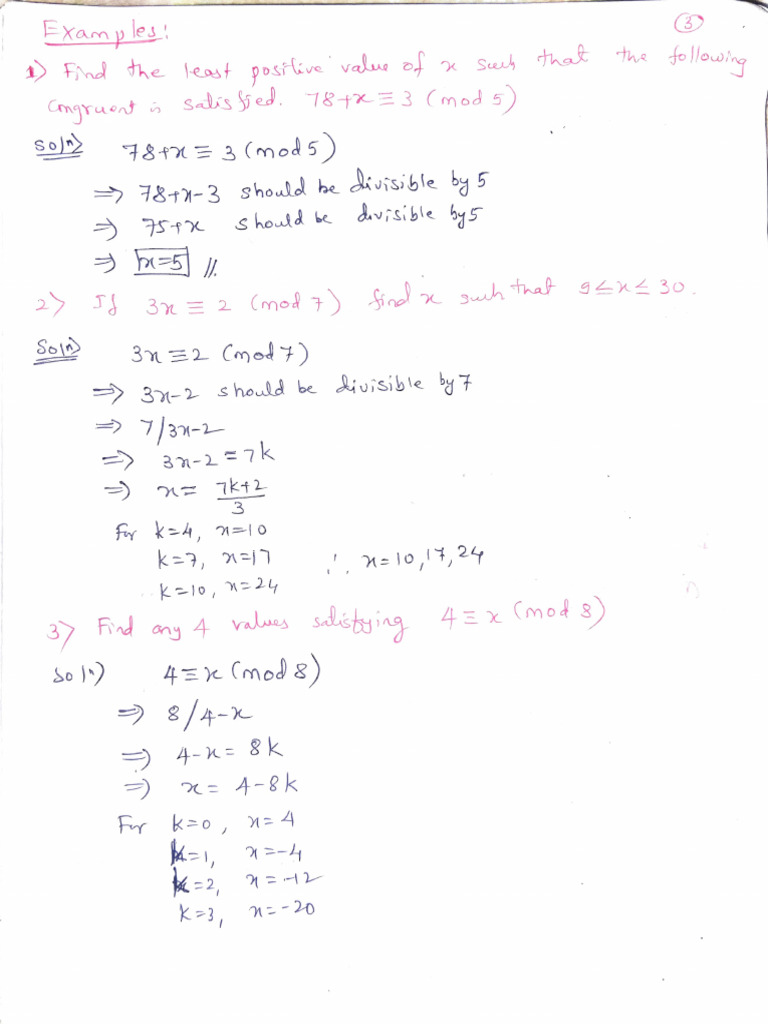 Examples:
3
1) Find the least positive value of x such that the following
congruent is satisfied. 78+x ≡ 3 (mod 5)
Soln) 78+x ≡ 3 (mod 5)
⇒ 78+x-3 should be divisible by 5
⇒ 75+x should be divisible by 5
⇒ x=5 //.
2) If 3x ≡ 2 (mod 7) find x such that 9≤x≤30.
Soln) 3x ≡ 2 (mod 7)
⇒ 3x-2 should be divisible by 7
⇒ 7/3x-2
⇒ 3x-2 = 7k
⇒ x = (7k+2)/3
For k=4, x=10
k=7, x=17 ∴ x=10,17,24
k=10, x=24
3) Find any 4 values satisfying 4 ≡ x (mod 8)
Soln) 4 ≡ x (mod 8)
⇒ 8/4-x
⇒ 4-x = 8k
⇒ x = 4-8k
For k=0, x=4
k=1, x=-4
k=2, x=-12
k=3, x=-20